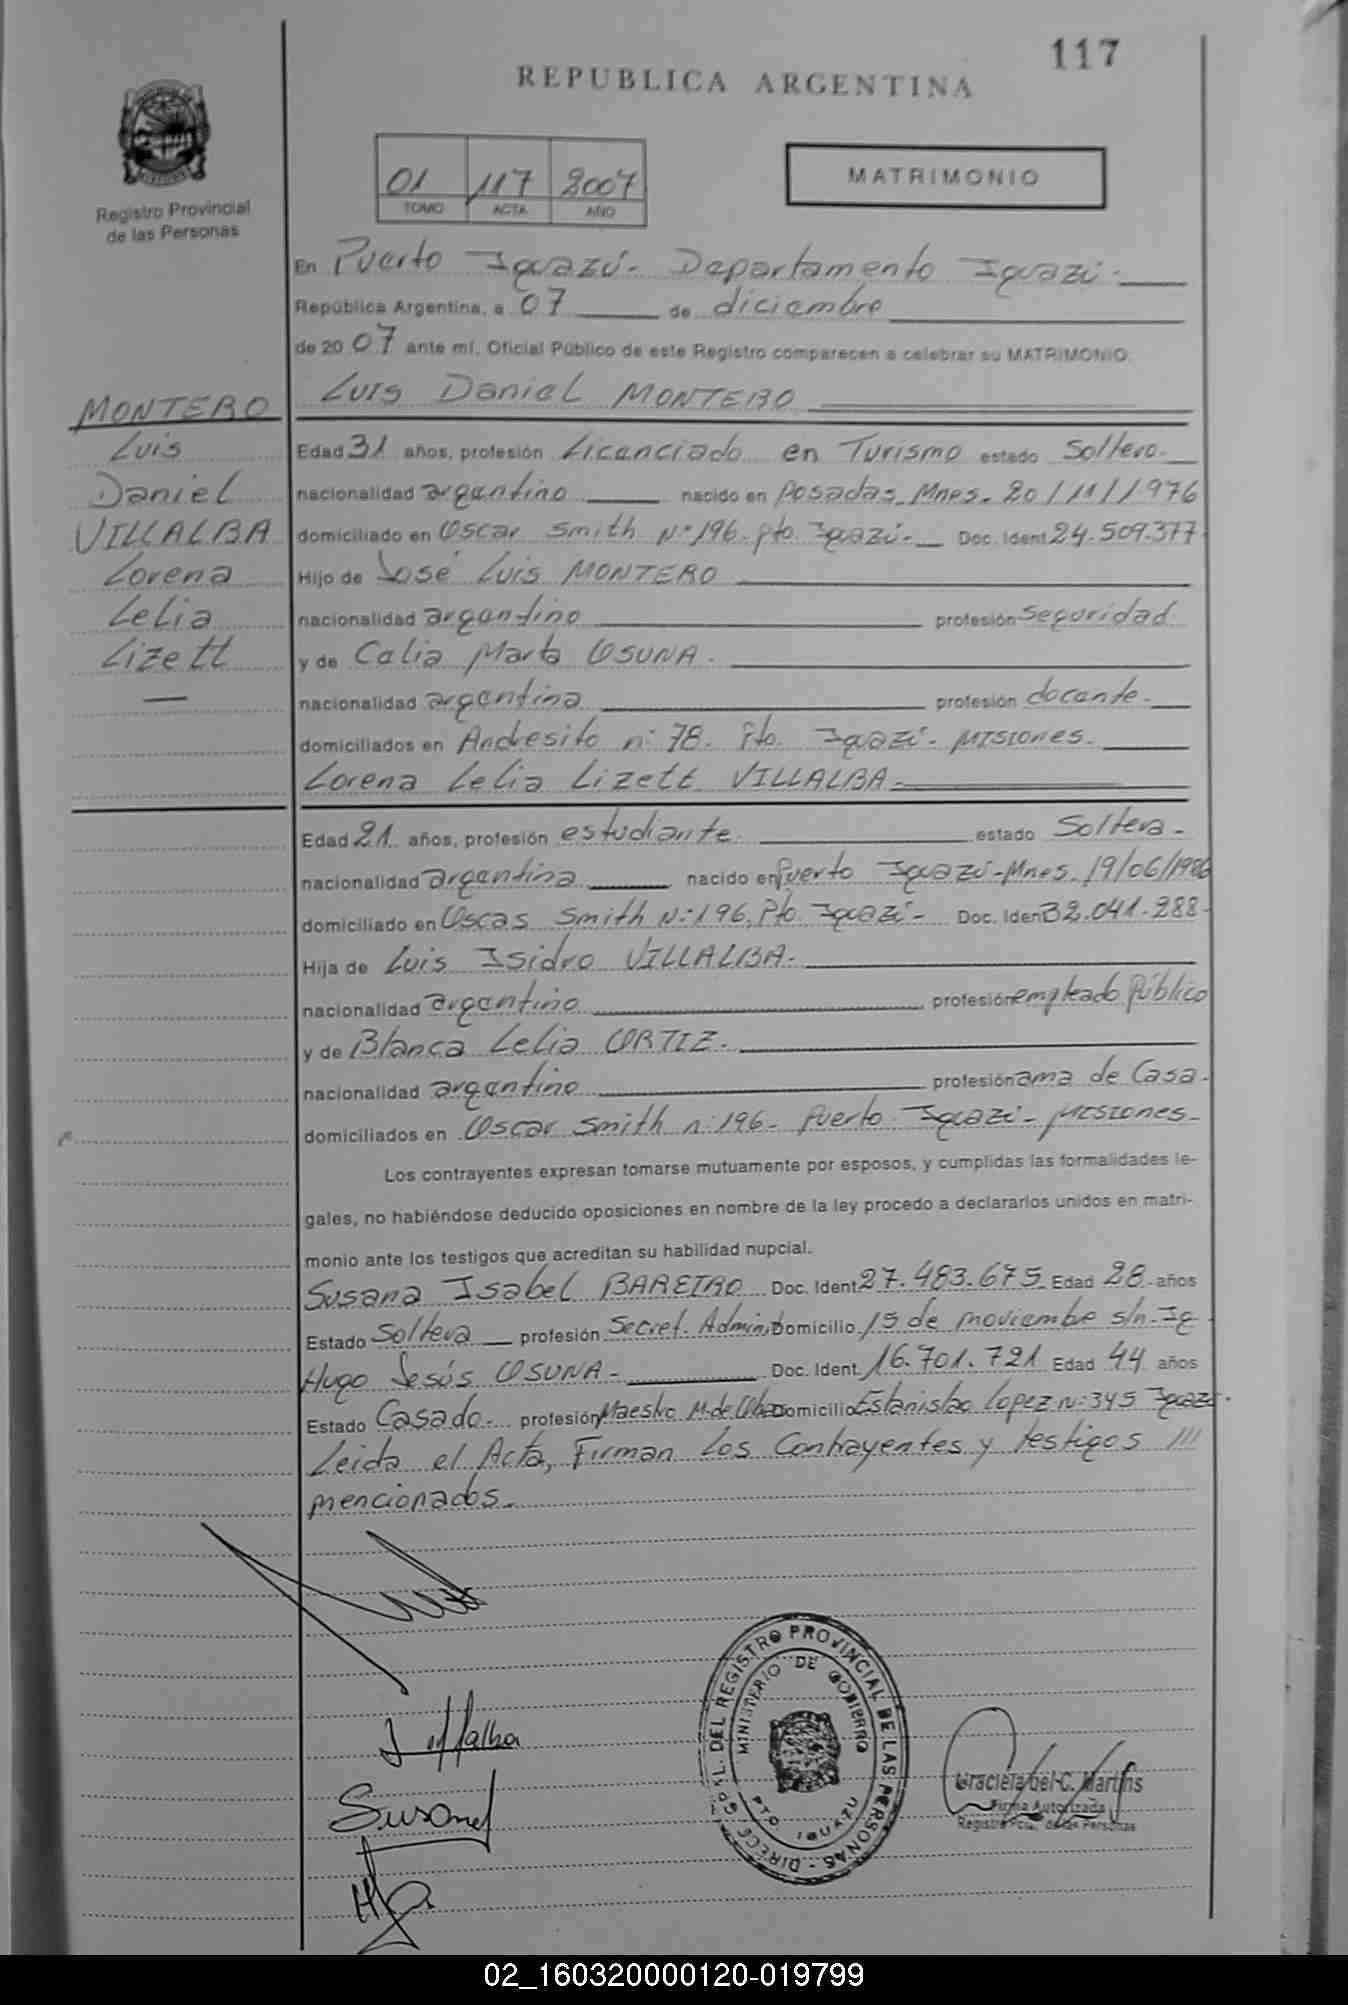 117
REPUBLICA ARGENTINA
01 117 2007
TOMO ACTA AÑO
MATRIMONIO
Registro Provincial
de las Personas
En Puerto Iguazú- Departamento Iguazú-
República Argentina, a 07 de diciembre
de 2007 ante mí, Oficial Público de este Registro comparecen a celebrar su MATRIMONIO:
Luis Daniel MONTERO
MONTERO
Luis
Daniel
VILLALBA
Lorena
Lelia
Lizett
Edad 31 años, profesión Licenciado en Turismo estado Soltero.
nacionalidad argentino nacido en Posadas Mnes. 20/11/1976
domiciliado en Oscar Smith Nº 196. Pto. Iguazú- Doc. Ident 24.509.377.
Hijo de José Luis MONTERO
nacionalidad argentino profesión seguridad
y de Celia Marta OSUNA.
nacionalidad argentina profesión docente.
domiciliados en Andresito nº 78. Pto. Iguazú- MISIONES.
Lorena Lelia Lizett VILLALBA.
Edad 21 años, profesión estudiante estado Soltera-
nacionalidad argentina nacido en Puerto Iguazú-Mnes. 19/06/1986
domiciliado en Oscas Smith Nº 196. Pto. Iguazú- Doc. Iden 32.041.288-
Hija de Luis Isidro VILLALBA.
nacionalidad argentino profesión empleado Público
y de Blanca Lelia ORTIZ.
nacionalidad argentino profesión ama de Casa.
domiciliados en Oscar Smith nº 196- Puerto Iguazú- MISIONES-
Los contrayentes expresan tomarse mutuamente por esposos, y cumplidas las formalidades le-
gales, no habiéndose deducido oposiciones en nombre de la ley procedo a declararlos unidos en matri-
monio ante los testigos que acreditan su habilidad nupcial.
Susana Isabel BAREIRO Doc. Ident 27.483.675 Edad 28 años
Estado Soltera profesión Secret. Administ Domicilio 15 de noviembre s/n-Ig.
Hugo Jesús OSUNA- Doc. Ident. 16.701.721 Edad 44 años
Estado Casado. profesión Maestro M. de Obras Domicilio Estanislao Lopez Nº 345 Iguazú.
Leida el Acta, Firman Los Contrayentes y testigos ///
mencionados.
Villalba
Susana
DIRECC. GRAL. DEL REGISTRO PROVINCIAL DE LAS PERSONAS -
MINISTERIO DE GOBIERNO
PTO. IGUAZU
Graciela del C. Martins
Firma Autorizada
Registro Pcial. de las Personas
02_160320000120-019799